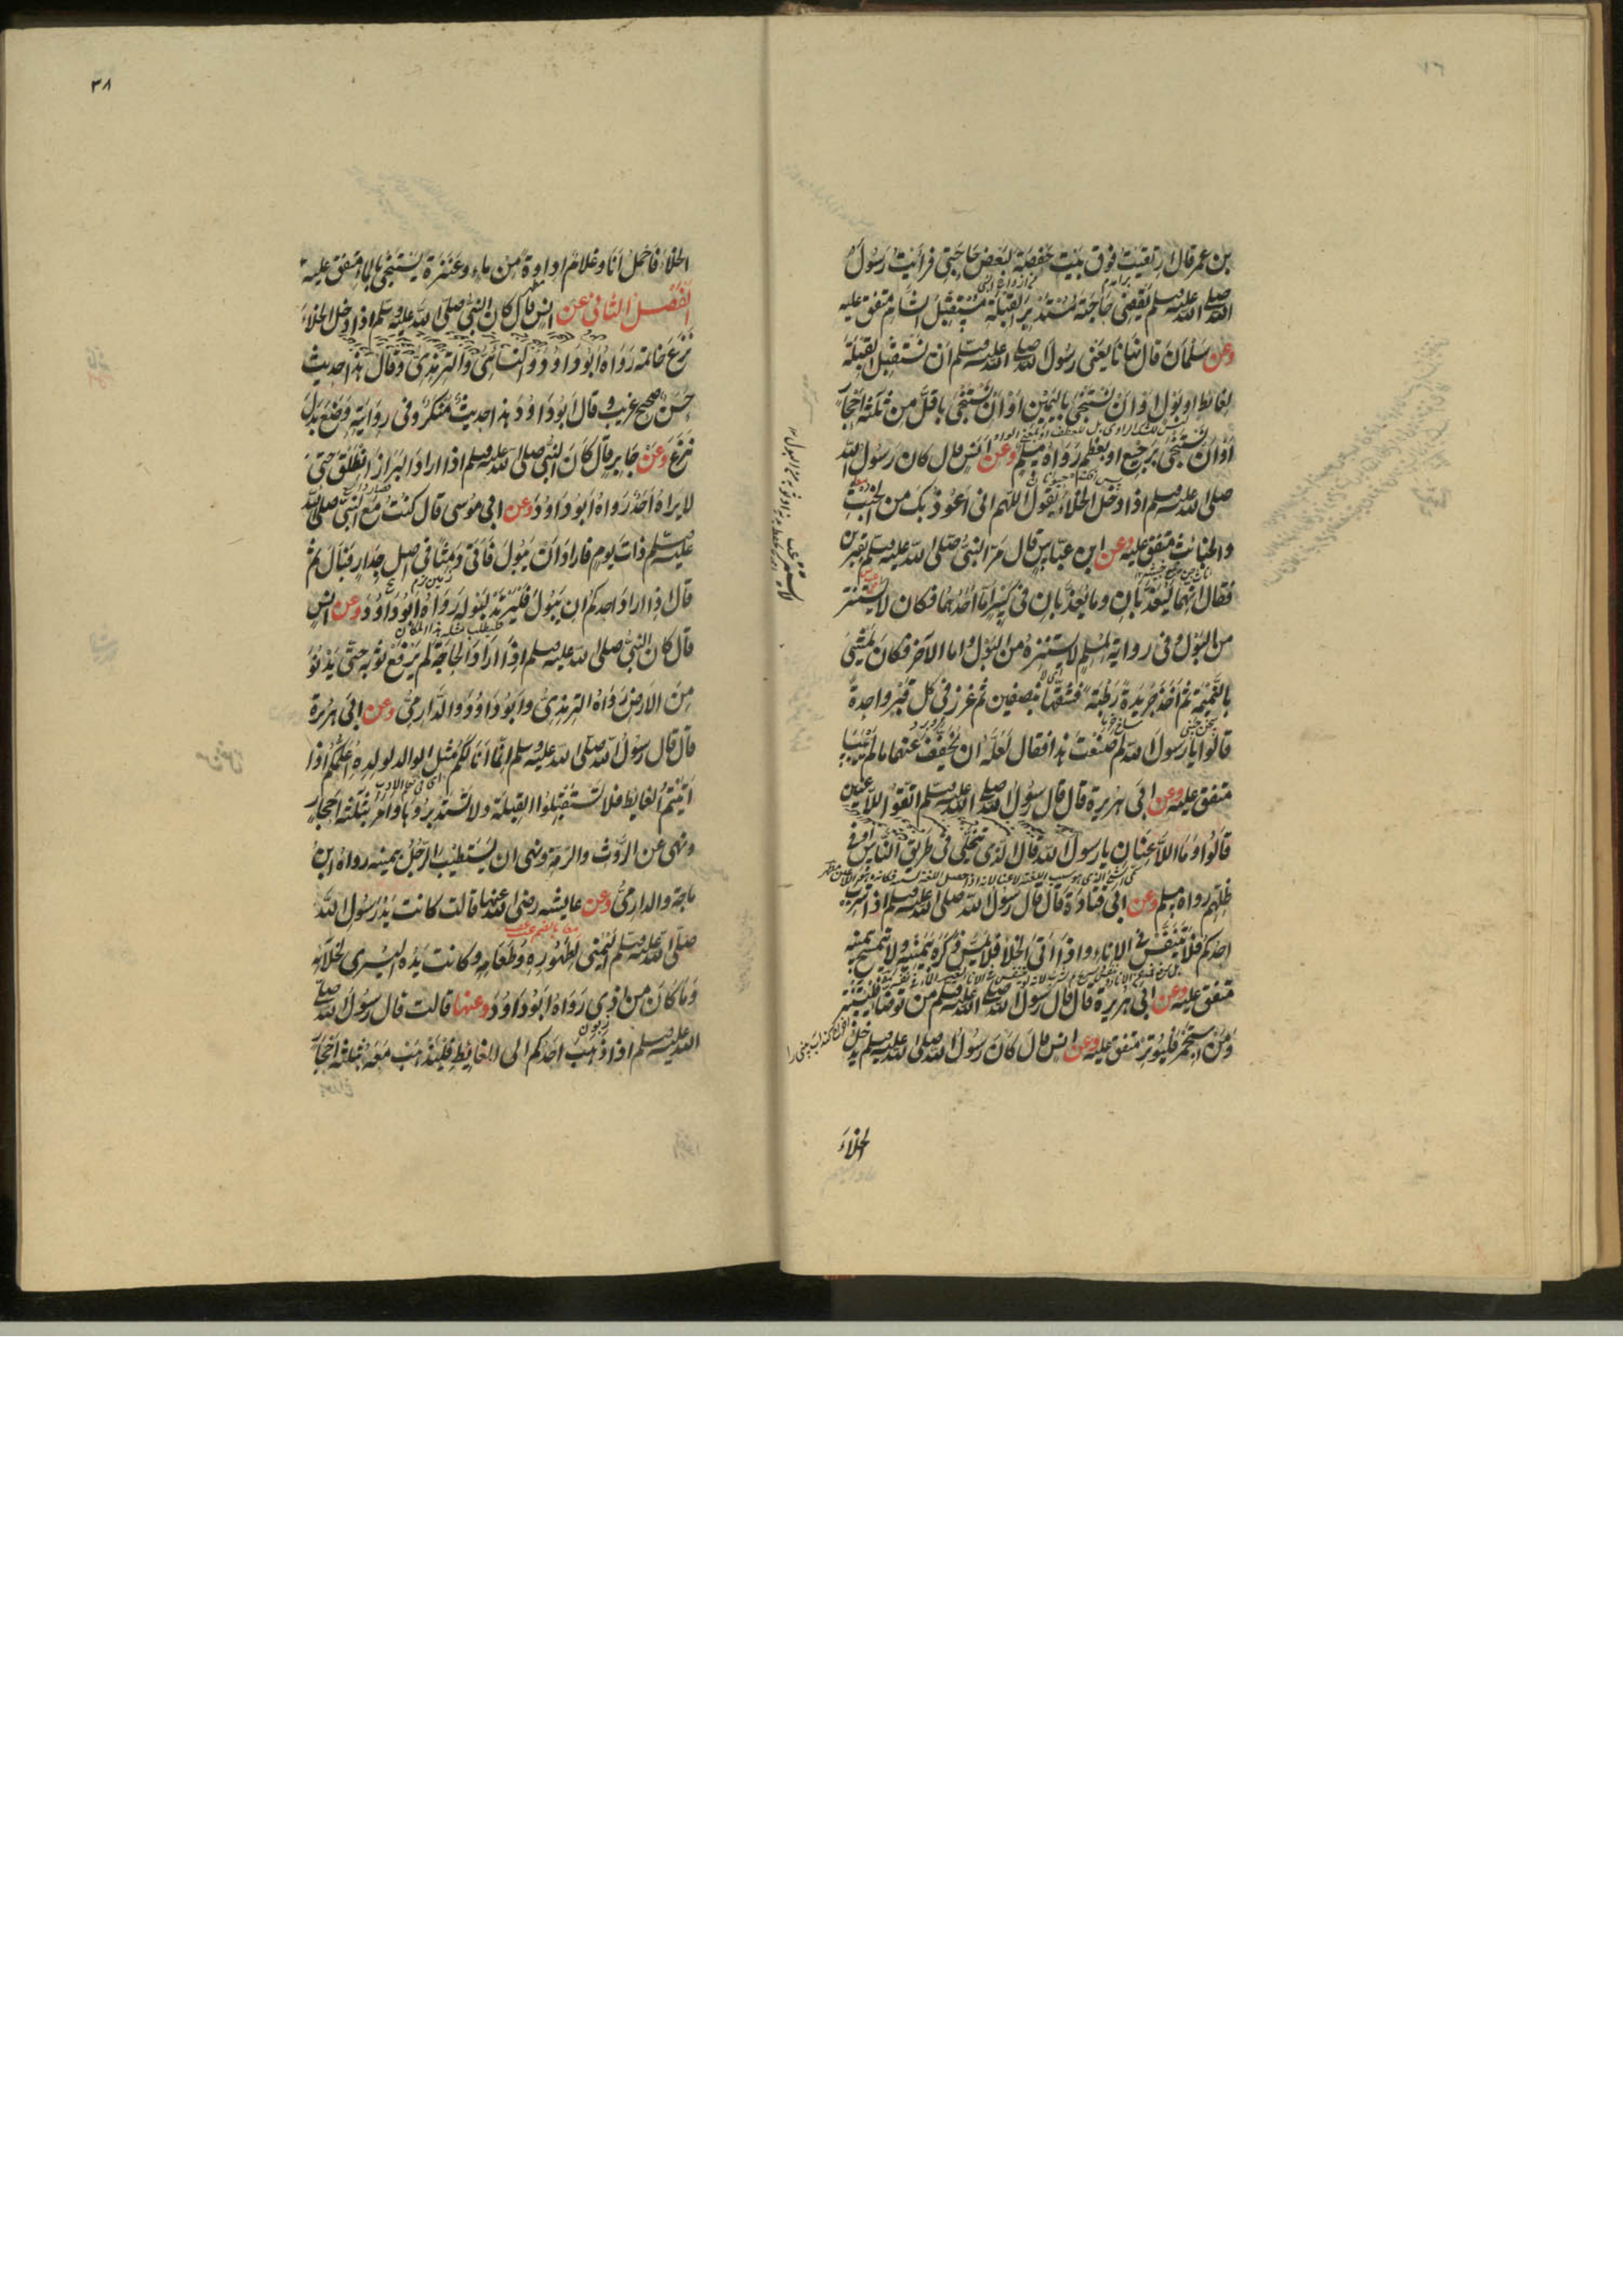 بن عمر قال ارتقيت فوق بيت حفصة لبعض حاجتى فرأيت رسول
الله صلى الله عليه وسلم يقضى حاجته مستدبر القبلة مستقبل الشام متفق عليه
وعن سلمان قال نهانا يعنى رسول الله صلى الله عليه وسلم ان نستقبل القبلة
لغائط او بول او ان نستنجى باليمين او ان نستنجى باقل من ثلثة احجار
او ان نستنجى برجيع او بعظم رواه مسلم وعن انس قال كان رسول الله
صلى الله عليه وسلم اذا دخل الخلاء يقول اللهم انى اعوذ بك من الخبث
والخبائث متفق عليه وعن ابن عباس قال مر النبى صلى الله عليه وسلم بقبرين
فقال انهما ليعذبان وما يعذبان فى كبير اما احدهما فكان لا يستتر
من البول وفى رواية لمسلم لا يستنزه من البول واما الآخر فكان يمشى
بالنميمة ثم اخذ جريدة رطبة فشقها بنصفين ثم غرز فى كل قبر واحدة
قالوا يا رسول الله لم صنعت هذا فقال لعله ان يخفف عنهما ما لم ييبسا
متفق عليه وعن ابى هريرة قال قال رسول الله صلى الله عليه وسلم اتقوا اللاعنين
قالوا وما اللاعنان يا رسول الله قال الذى يتخلى فى طريق الناس او فى
ظلهم رواه مسلم وعن ابى قتادة قال قال رسول الله صلى الله عليه وسلم اذا شرب
احدكم فلا يتنفس فى الاناء واذا اتى الخلاء فلا يمس ذكره بيمينه ولا يتمسح بيمينه
متفق عليه وعن ابى هريرة قال قال رسول الله صلى الله عليه وسلم من توضأ فليستنثر
ومن استجمر فليوتر متفق عليه وعن انس قال كان رسول الله صلى الله عليه وسلم يدخل
الخلاء
٣٨
الخلاء فاحمل انا وغلام اداوة من ماء وعنزة يستنجى بالماء متفق عليه
الفصل الثانى عن انس قال كان النبى صلى الله عليه وسلم اذا دخل الخلاء
نزع خاتمه رواه ابو داود والنسائى والترمذى وقال هذا حديث
حسن صحيح غريب وقال ابو داود هذا حديث منكر وفى رواية وضع بدل
نزع وعن جابر قال كان النبى صلى الله عليه وسلم اذا اراد البراز انطلق حتى
لا يراه احد رواه ابو داود وعن ابى موسى قال كنت مع النبى صلى الله
عليه وسلم ذات يوم فاراد ان يبول فاتى دمثا فى اصل جدار فبال ثم
قال اذا اراد احدكم ان يبول فليرتد لبوله رواه ابو داود وعن انس
قال كان النبى صلى الله عليه وسلم اذا اراد الحاجة لم يرفع ثوبه حتى يدنو
من الارض رواه الترمذى وابو داود والدارمى وعن ابى هريرة
قال قال رسول الله صلى الله عليه وسلم انما انا لكم مثل الوالد لولده اعلمكم اذا
اتيتم الغايط فلا تستقبلوا القبلة ولا تستدبروها وامر بثلثة احجار
ونهى عن الروث والرمة ونهى ان يستطيب الرجل بيمينه رواه ابن
ماجة والدارمى وعن عايشه رضى الله عنها قالت كانت يد رسول الله
صلى الله عليه وسلم اليمنى لطهوره وطعامه وكانت يده اليسرى لخلائه
وما كان من اذى رواه ابو داود وعنها قالت قال رسول الله صلى
الله عليه وسلم اذا ذهب احدكم الى الغايط فليذهب معه بثلثة احجار